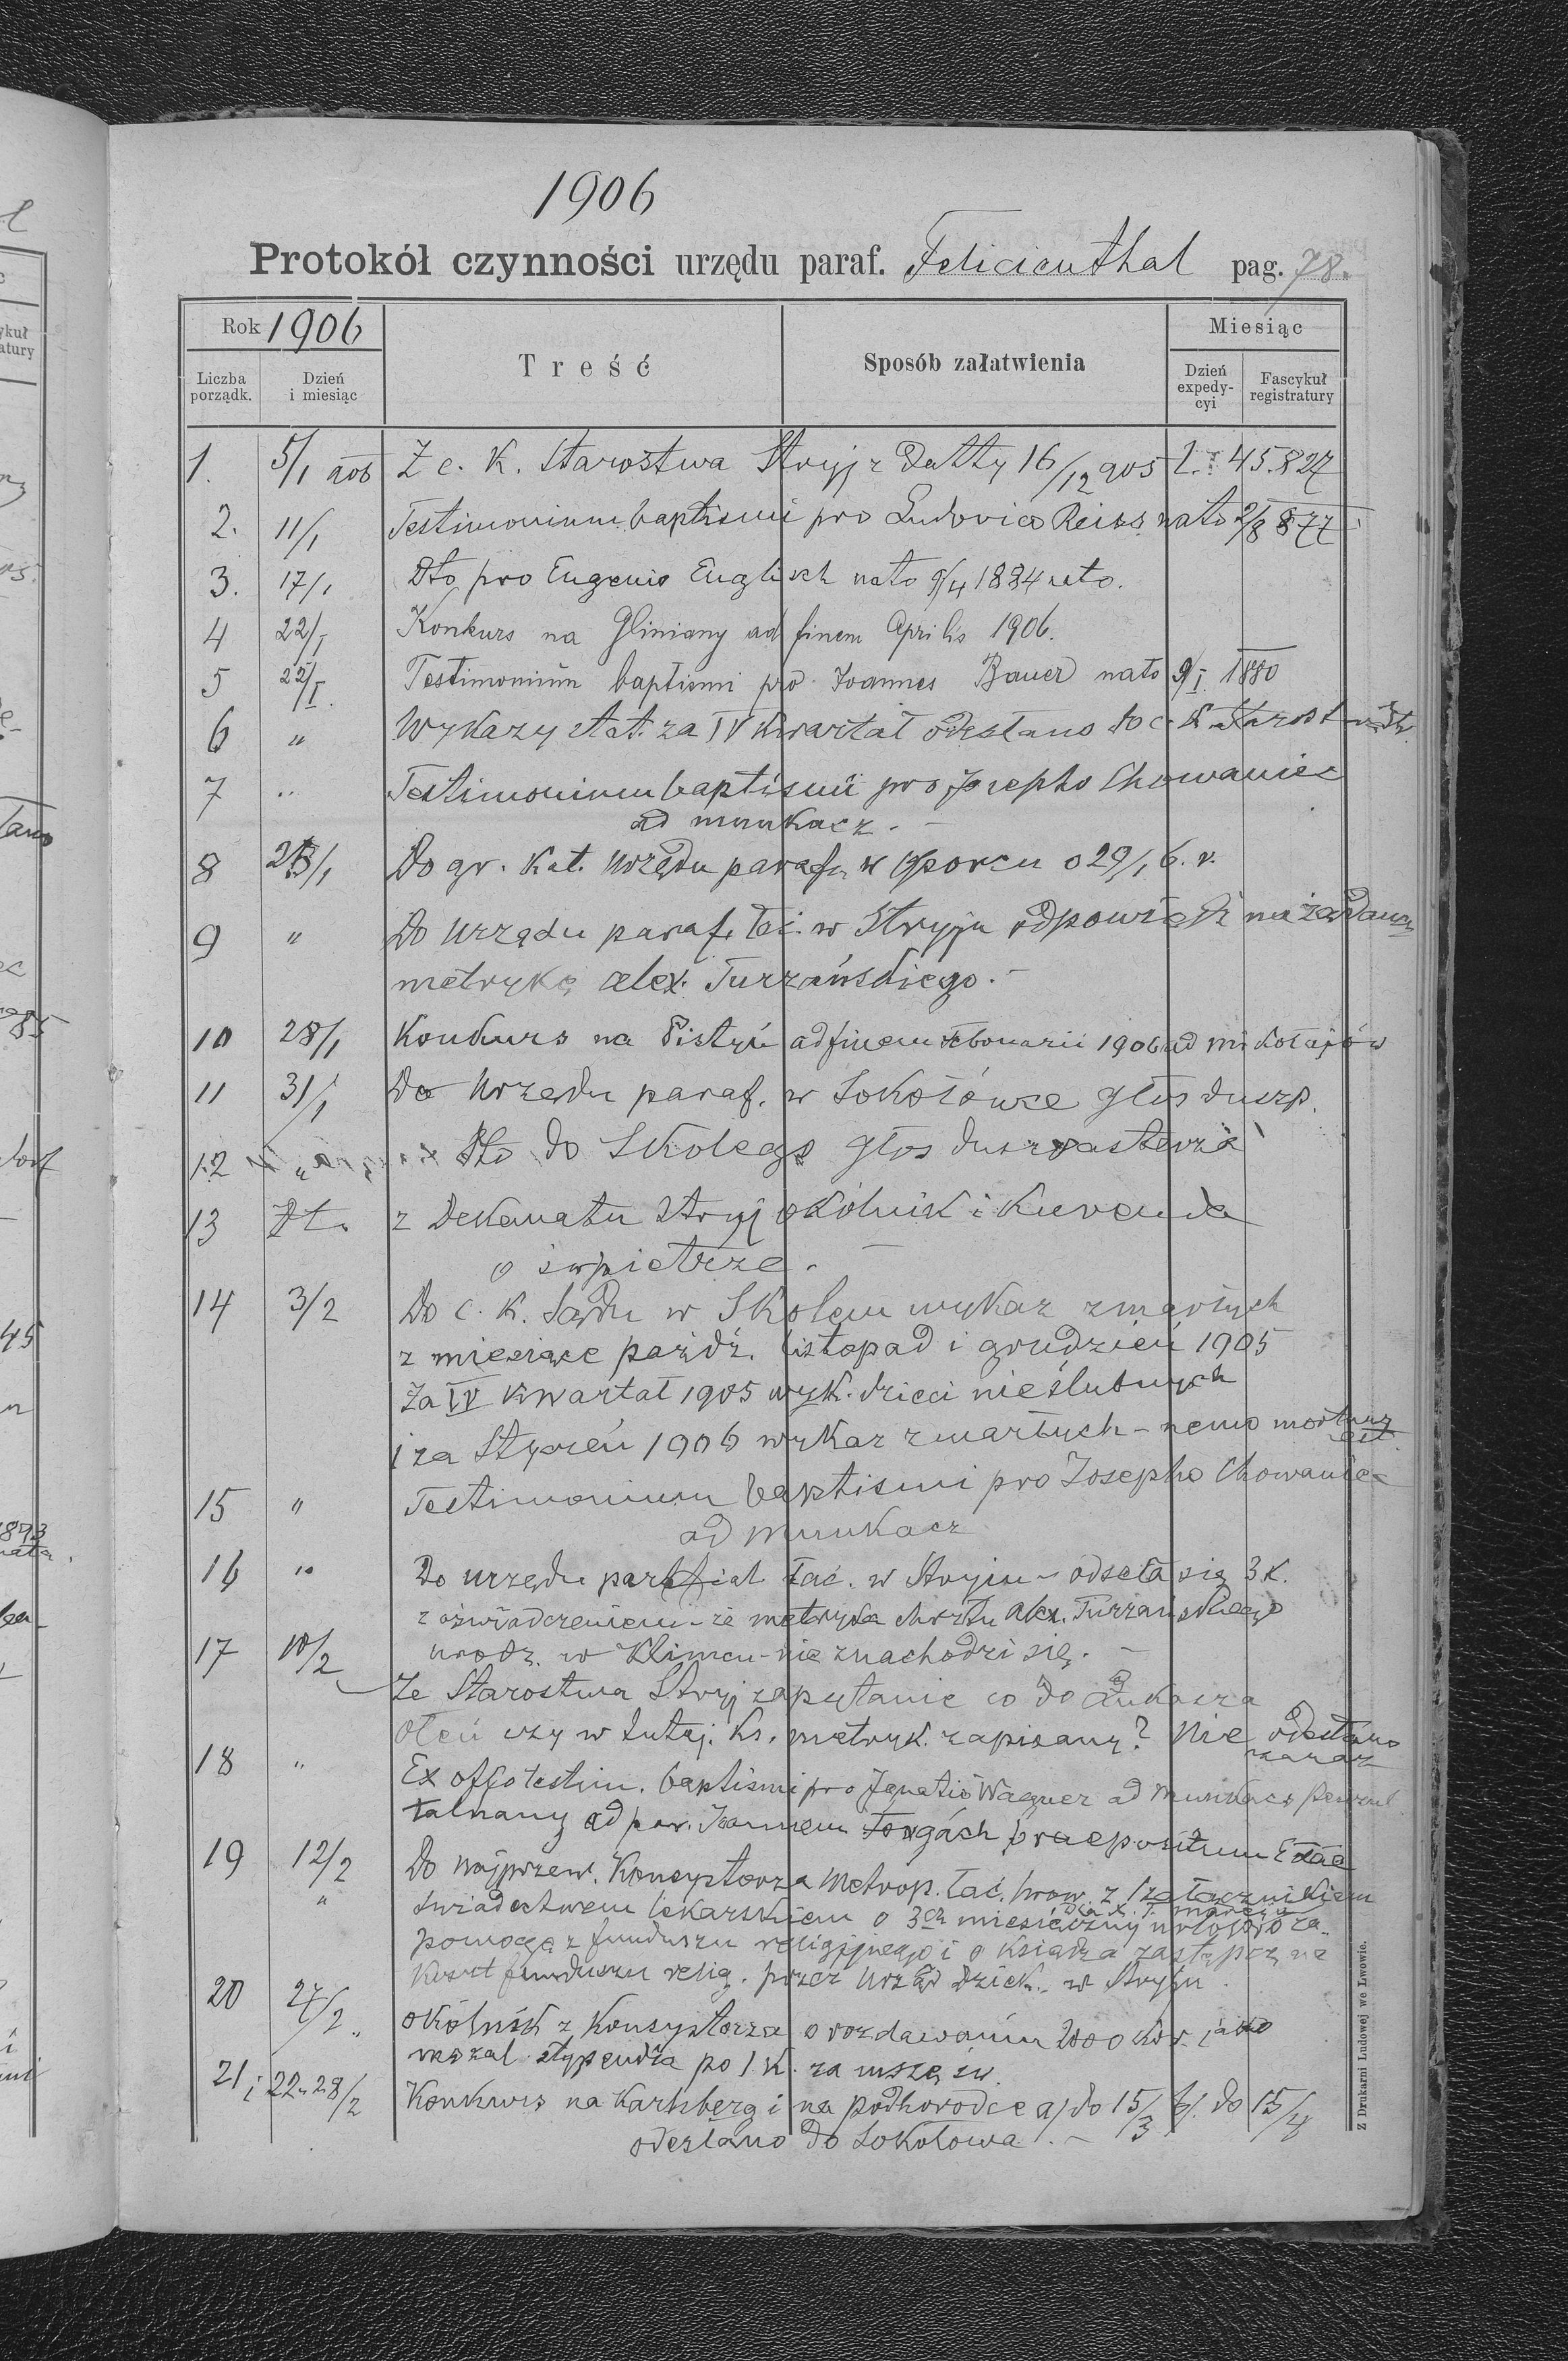 1906
Protokół czynności urzędu paraf. Felicienthal pag. 78.
Rok 1906
Treść
Sposób załatwienia
Miesiąc
Liczba porządk.
Dzień i miesiąc
Dzień expedy-cyi
Fascykuł registratury
1. 5/1 906 Z c. K. Starostwa Stryj z Datty 16/12 905 L. 45.827
2. 11/1 Testimonium baptismi pro Ludovico Reiss nato 2/8 877
3. 17/1 Dto pro Eugenio Englisch nato 9/4 1884
4 22/I Konkurs na Gliniany ad finem Aprilis 1906.
5 22/I. Testimonium baptismi pro Joannes Bauer nato 9/I. 1880
6 " Wykazy stat. za IV Kwartał odesłano do c. K. Starostwa
7 " Testimonium baptismi pro Josepho Chowaniec
ad munkacz. —
8 28/1 Do gr. Kat. Urzędu paraf. w o 29/1 6. r.
9 " Do Urzędu paraf. łać. w Stryju odpowiedź na żądaną
metrykę Alex. Turzańskiego. —
10 28/1 Konkurs na Pistyń ad finem 1906 ad Mikołajów
11 31/1 Do Urzędu paraf. w Sokołówce głos duszp.
12 " Dto do Skolego głos duszpasterza
13 Dt. z Dekanatu Stryj okólnik i Kurenda
o święto­pietrze. —
14 3/2 Do c. K. Sądu w Skolem wykaz zmarłych
z miesiące paźdź. listopad i grudzień 1905
Za IV kwartał 1905 wyk. dzieci nieślubnych
i za Styczeń 1906 wykaz zmarłych – nemo mortuus
est.
15 " Testimonium baptismi pro Josepho Chowaniec
ad munkacz
16 " Do urzędu parafial. łać. w Stryju – odseła się 3 K.
z oświadczeniem – że metryka chrztu Alex. Turzańskiego
urodz. w Klimcu – nie znachodzi się. —
17 10/2 Ze Starostwa Stryj zapytanie co do Łukasza
czy w tutej. Ks. metryk. zapisany? Nie odesłano
zaraz
18 " Ex offo testim. baptismi pro Ignatio Wagner ad Munkacs
ad par. Joannem praepositum
19 12/2 Do najprzew. Konsystorza Metrop. łać. lwow. z 1 załącznikiem
" świadectwem lekarskiem o 3ch miesięczny urlop i o za-
pomogę z funduszu religijnego i o Księdza zastępcę na
Koszt funduszu relig. przez Urząd Dziek. w Stryju.
20 27/2 okólnik z Konsystorza o rozdawaniu 2000 Kor. jako
stypendia po 1 K. za mszę św.
21 i 22. 28/2 Konkurs na Karlsberg i na podhorodce a) do 15/3 b). do 15/4
odesłano do Sokołowa. —
Z Drukarni Ludowej we Lwowie.